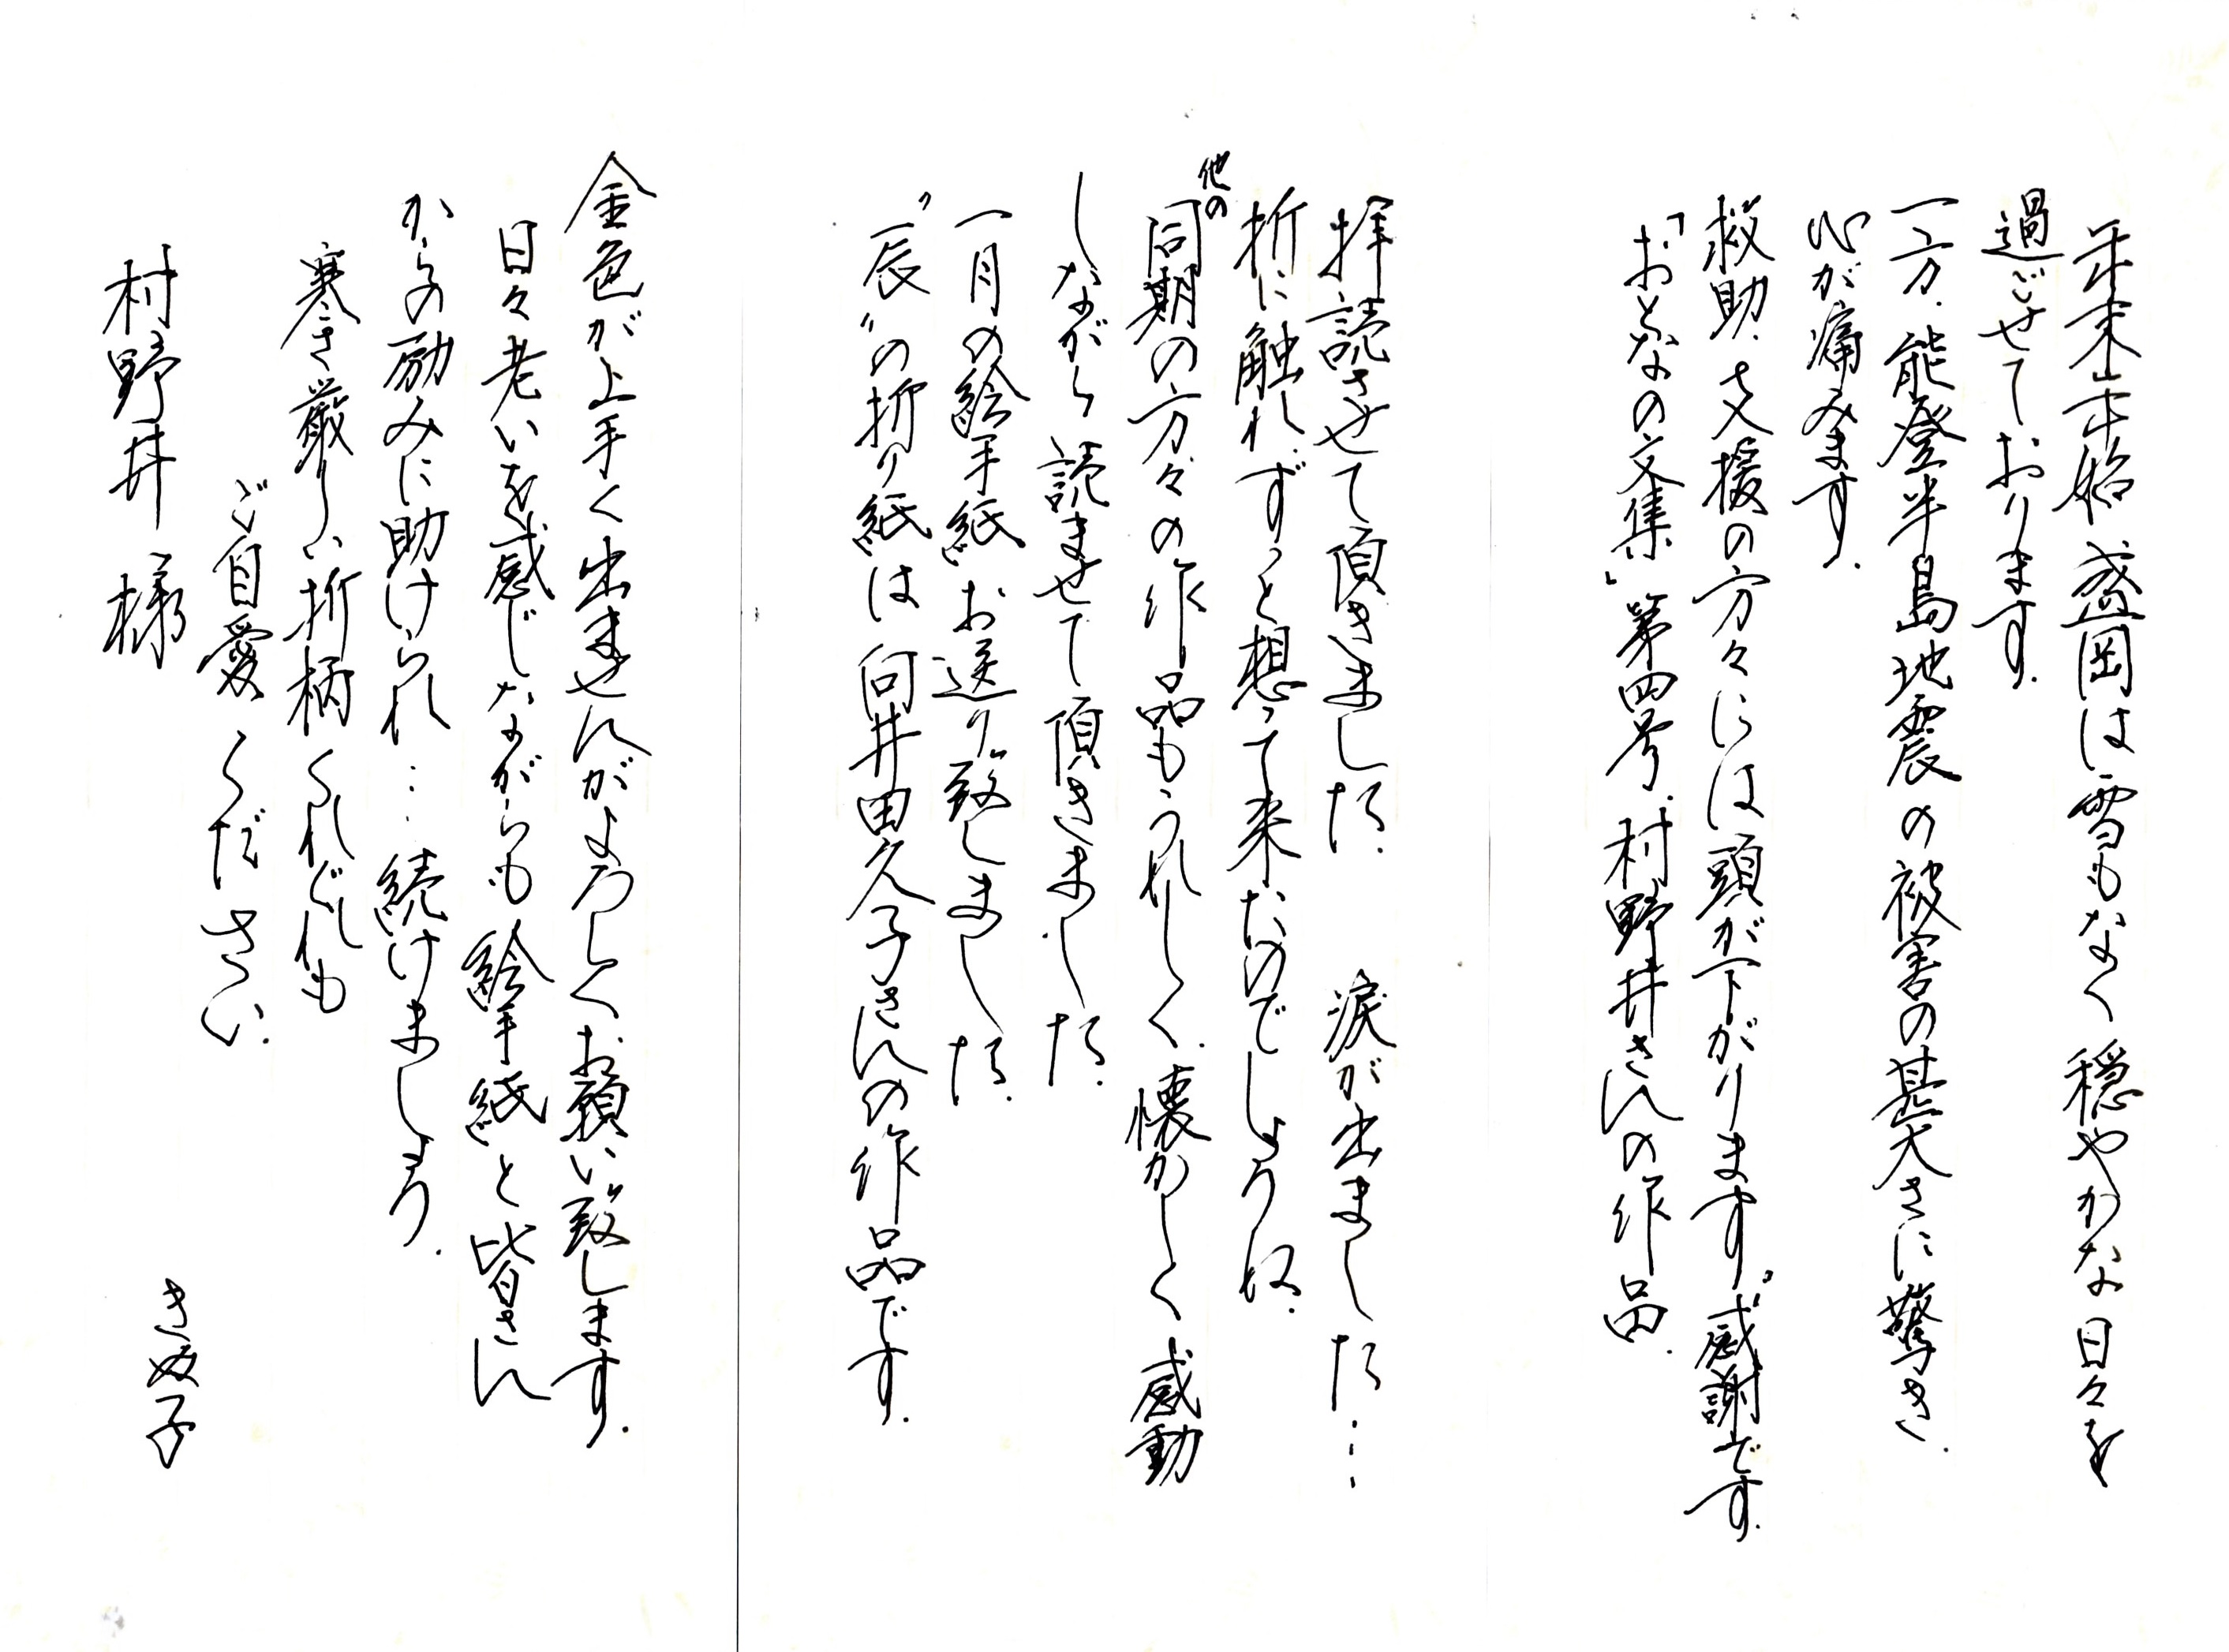 年末年始盛岡は雪もなく穏やかな日々を
過ごせております.
一方.能登半島地震の被害の甚大さに驚き.
心が痛みます.
救助.支援の方々には頭が下がります〝感謝です.
「おとなの文集」第四号.村野井さんの作品.
拝読させて頂きました.涙が出ました….
折に触れ.ずっと想って来たのでしょうね.
他の
同期の方々の作品もうれしく.懐かしく感動
しながら読ませて頂きました.
一月の絵手紙お送り致しました.
〝辰〟の折り紙は向井田久子さんの作品です.
金色が上手く出ませんがよろしくお願い致します.
日々老いを感じながらも絵手紙と皆さん
からの励みに助けられ……続けましょう.
寒さ厳しい折柄くれぐれも
ご自愛ください.
きぬ子
村野井様